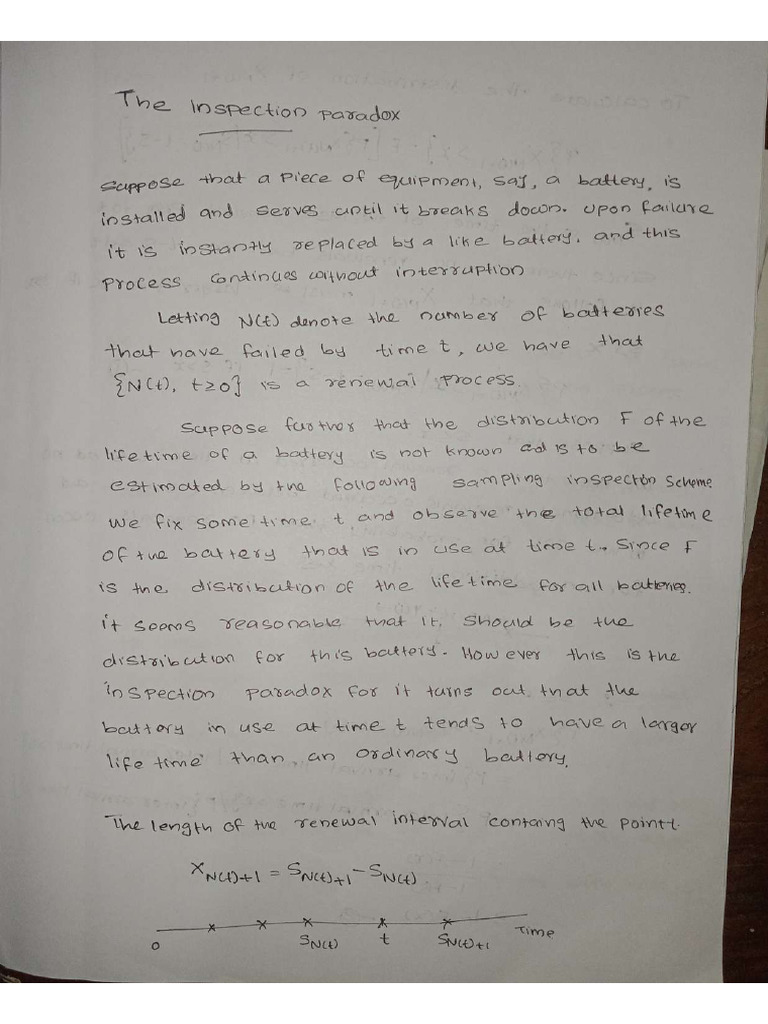 The Inspection Paradox
Suppose that a piece of equipment, say, a battery, is
installed and serves until it breaks down. Upon failure
it is instantly replaced by a like battery, and this
process continues without interruption
Letting N(t) denote the number of batteries
that have failed by time t, we have that
{N(t), t≥0} is a renewal process.
Suppose further that the distribution F of the
lifetime of a battery is not known ad is to be
estimated by the following sampling inspecton scheme
we fix some time t, and observe the total lifetime
of the battery that is in use at time t. Since F
is the distribution of the lifetime for all batteries.
it seems reasonable that it should be the
distribution for this battery. However this is the
inspection paradox for it turns out that the
battery in use at time t tends to have a larger
life time than an ordinary battery.
The length of the renewal interval containg the point t.
X_{N(t)+1} = S_{N(t)+1} - S_{N(t)}
0 S_{N(t)} t S_{N(t)+1} Time